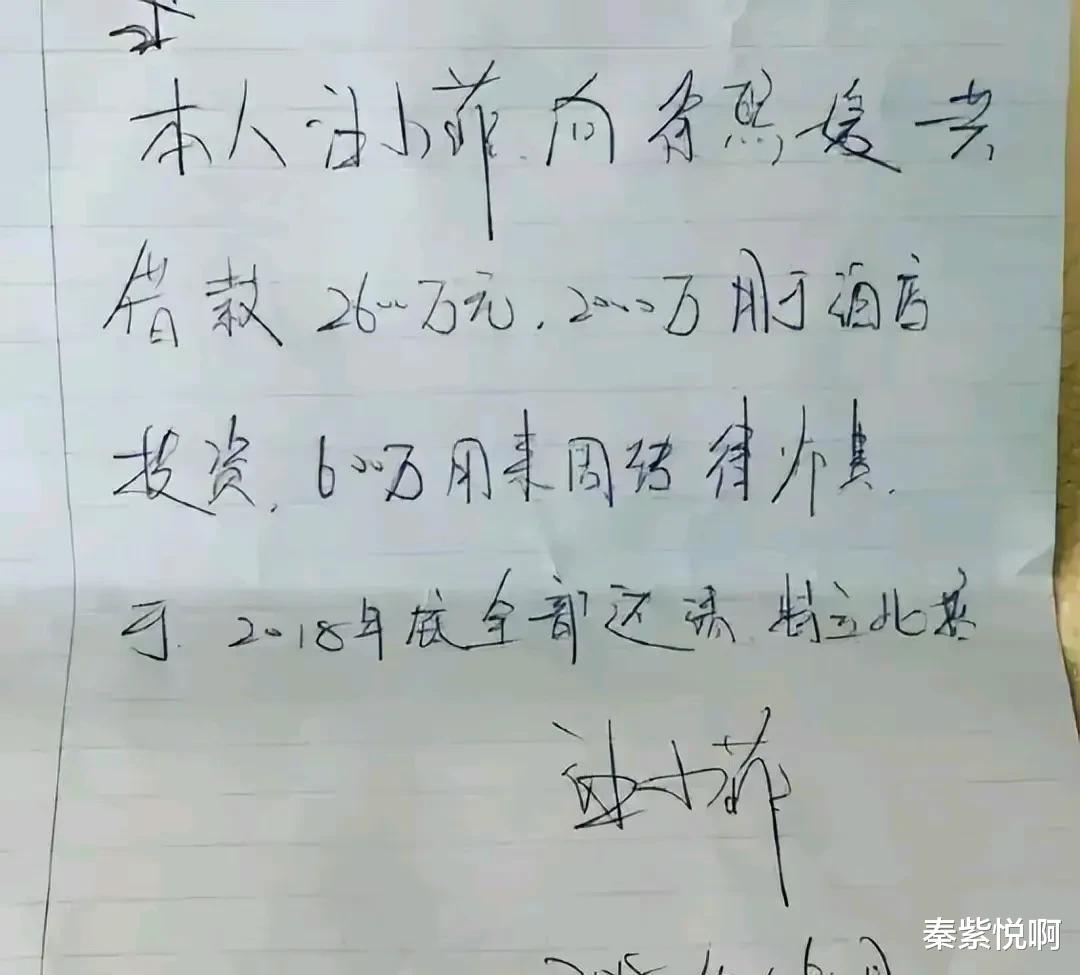 本人汪小菲向徐熙媛共
借款2600万元，2000万用于酒店
投资，600万用来周转律师费，
于2018年底全部还清，特立此
汪小菲
秦紫悦啊